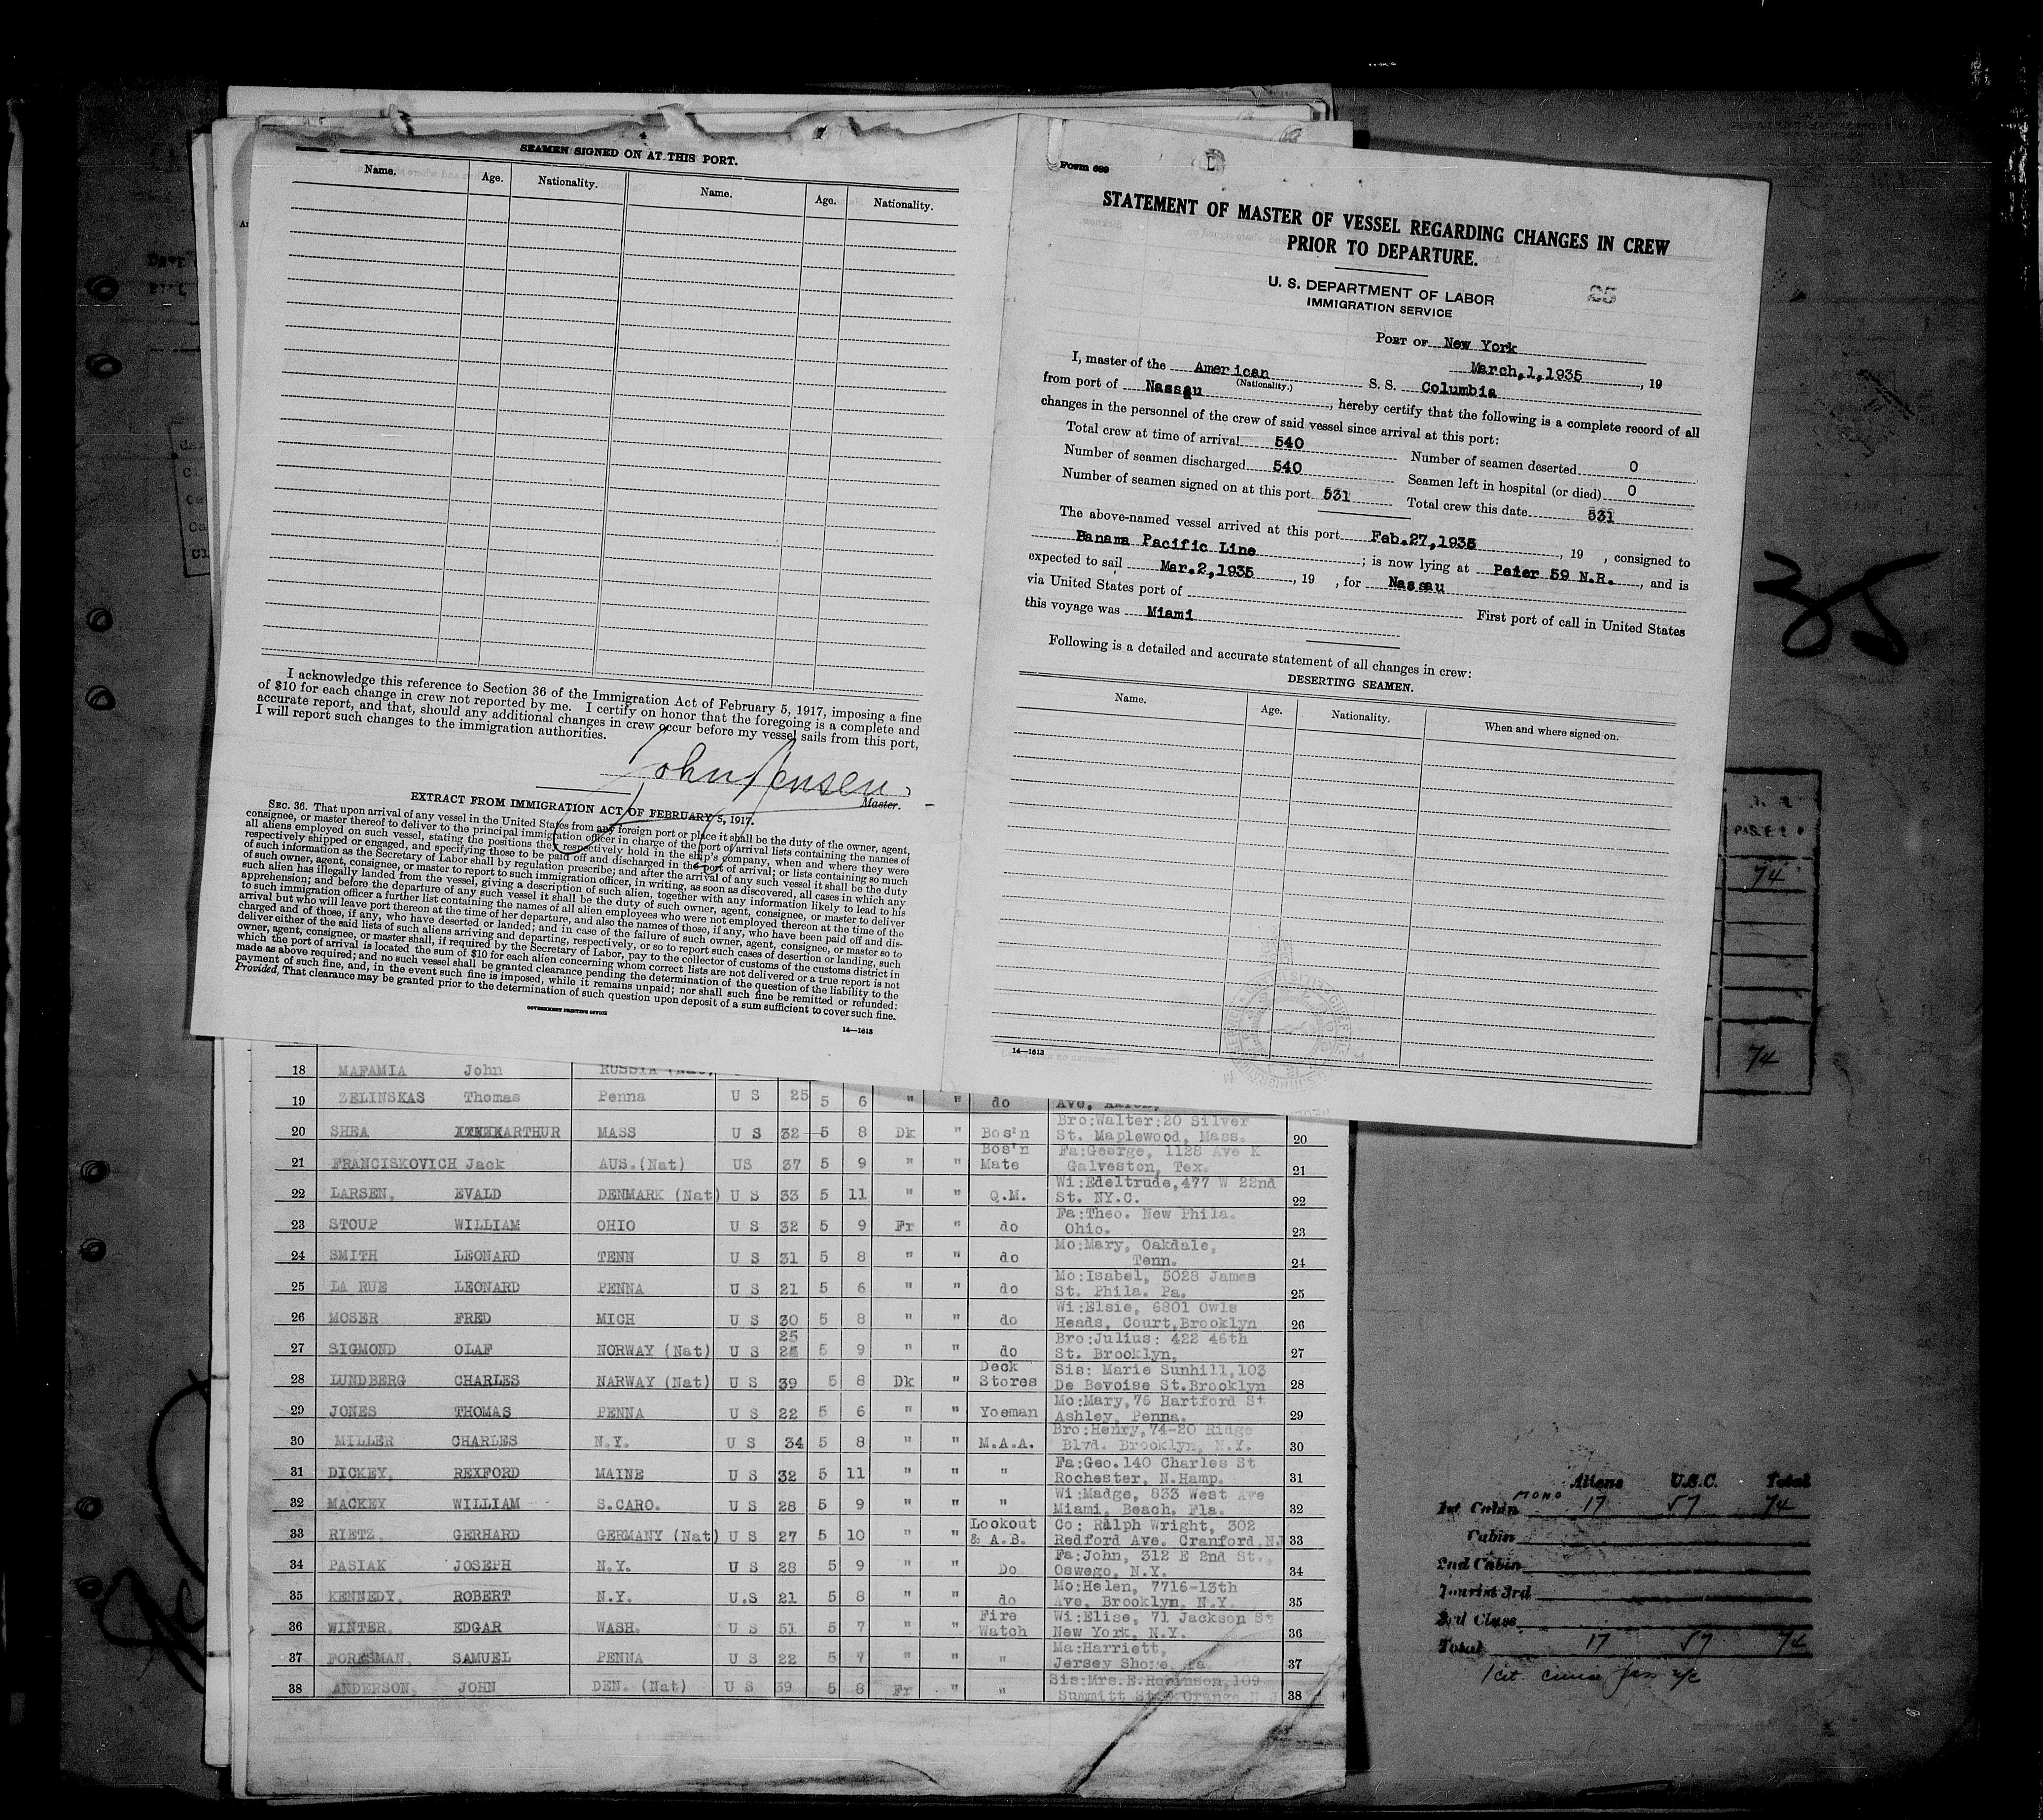 SEAMEN SIGNED ON AT THIS PORT.
Name. Age. Nationality. Name. Age. Nationality.
I acknowledge this reference to Section 36 of the Immigration Act of February 5, 1917, imposing a fine
of $10 for each change in crew not reported by me. I certify on honor that the foregoing is a complete and
accurate report, and that, should any additional changes in crew occur before my vessel sails from this port,
I will report such changes to the immigration authorities.
John Jensen
Master.
EXTRACT FROM IMMIGRATION ACT OF FEBRUARY 5, 1917.
SEC. 36. That upon arrival of any vessel in the United States from any foreign port or place it shall be the duty of the owner, agent,
consignee, or master thereof to deliver to the principal immigration officer in charge of the port of arrival lists containing the names of
all aliens employed on such vessel, stating the positions they respectively hold in the ship's company, when and where they were
respectively shipped or engaged, and specifying those to be paid off and discharged in the port of arrival; or lists containing so much
of such information as the Secretary of Labor shall by regulation prescribe; and after the arrival of any such vessel it shall be the duty
of such owner, agent, consignee, or master to report to such immigration officer, in writing, as soon as discovered, all cases in which any
such alien has illegally landed from the vessel, giving a description of such alien, together with any information likely to lead to his
apprehension; and before the departure of any such vessel it shall be the duty of such owner, agent, consignee, or master to deliver
to such immigration officer a further list containing the names of all alien employees who were not employed thereon at the time of the
arrival but who will leave port thereon at the time of her departure, and also the names of those, if any, who have been paid off and dis-
charged and of those, if any, who have deserted or landed; and in case of the failure of such owner, agent, consignee, or master so to
deliver either of the said lists of such aliens arriving and departing, respectively, or so to report such cases of desertion or landing, such
owner, agent, consignee, or master shall, if required by the Secretary of Labor, pay to the collector of customs of the customs district in
which the port of arrival is located the sum of $10 for each alien concerning whom correct lists are not delivered or a true report is not
made as above required; and no such vessel shall be granted clearance pending the determination of the question of the liability to the
payment of such fine, and, in the event such fine is imposed, while it remains unpaid; nor shall such fine be remitted or refunded:
Provided, That clearance may be granted prior to the determination of such question upon deposit of a sum sufficient to cover such fine.
GOVERNMENT PRINTING OFFICE
14—1613
Form 689
STATEMENT OF MASTER OF VESSEL REGARDING CHANGES IN CREW
PRIOR TO DEPARTURE.
U. S. DEPARTMENT OF LABOR
IMMIGRATION SERVICE
25
PORT OF New York
March,1,1935, 19
I, master of the American S. S. Columbia
(Nationality.)
from port of Nassau, hereby certify that the following is a complete record of all
changes in the personnel of the crew of said vessel since arrival at this port:
Total crew at time of arrival 540 Number of seamen deserted 0
Number of seamen discharged 540 Seamen left in hospital (or died) 0
Number of seamen signed on at this port 531 Total crew this date 531
The above-named vessel arrived at this port Feb.27,1935, 19 , consigned to
Panama Pacific Line; is now lying at Peier 59 N.R., and is
expected to sail Mar.2,1935, 19 , for Nassau
via United States port of First port of call in United States
this voyage was Miami
Following is a detailed and accurate statement of all changes in crew:
DESERTING SEAMEN.
Name. Age. Nationality. When and where signed on.
14—1613
35
74
74
18 MAFAMIA John RUSSIA (Nat)
19 ZELINSKAS Thomas Penna U S 25 5 6 " " do
20 SHEA ARTHUR MASS U S 32 5 8 Dk " Bos'n Bro:Walter:20 Silver St. Maplewood, Mass. 20
21 FRANCISKOVICH Jack AUS.(Nat) US 37 5 9 " " Bos'n Mate Fa:George, 1128 Ave K Galveston, Tex. 21
22 LARSEN, EVALD DENMARK (Nat) U S 33 5 11 " " Q.M. Wi:Edeltrude,477 W 22nd St. NY.C. 22
23 STOUP WILLIAM OHIO U S 32 5 9 Fr " do Fa:Theo. New Phila. Ohio. 23
24 SMITH LEONARD TENN U S 31 5 8 " " do Mo:Mary, Oakdale, Tenn. 24
25 LA RUE LEONARD PENNA U S 21 5 6 " " do Mo:Isabel, 5028 James St. Phila. Pa. 25
26 MOSER FRED MICH U S 30 5 8 " " do Wi:Elsie, 6801 Owls Heads, Court,Brooklyn 26
27 SIGMOND OLAF NORWAY (Nat) U S 25 5 9 " " do Bro:Julius: 422 46th St. Brooklyn, 27
28 LUNDBERG CHARLES NARWAY (Nat) U S 39 5 8 Dk " Deck Stores Sis: Marie Sunhill,103 De Bevoise St.Brooklyn 28
29 JONES THOMAS PENNA U S 22 5 6 " " Yoeman Mo:Mary,76 Hartford St Ashley, Penna. 29
30 MILLER CHARLES N.Y. U S 34 5 8 " " M.A.A. Bro:Henry,74-20 Ridge Blvd. Brooklyn, N.Y. 30
31 DICKEY, REXFORD MAINE U S 32 5 11 " " " Fa:Geo.140 Charles St Rochester, N.Hamp. 31
32 MACKEY WILLIAM S.CARO. U S 28 5 9 " " " Wi:Madge, 833 West Ave Miami, Beach, Fla. 32
33 RIETZ, GERHARD GERMANY (Nat) U S 27 5 10 " " Lookout & A.B. Co: Ralph Wright, 302 Redford Ave. Cranford,NJ 33
34 PASIAK JOSEPH N.Y. U S 28 5 9 " " Do Fa:John, 312 E 2nd St., Oswego, N.Y. 34
35 KENNEDY, ROBERT N.Y. U.S 21 5 8 " " do Mo:Helen, 7716-13th Ave, Brooklyn, N.Y. 35
36 WINTER, EDGAR WASH. U S 51 5 7 " " Fire Watch Wi:Elise, 71 Jackson St New York, N.Y. 36
37 FORESMAN, SAMUEL PENNA U S 22 5 7 " " " Ma:Harriett, Jersey Shore, Pa 37
38 ANDERSON, JOHN DEN. (Nat) U S 39 5 8 Fr " " Sis:Mrs.E.Robinson,109 Summitt St. Orange N J 38
Aliens U.S.C. Total
1st Cabin MONO 17 57 74
Cabin
2nd Cabin
Tourist 3rd
3rd Class
Total 17 57 74